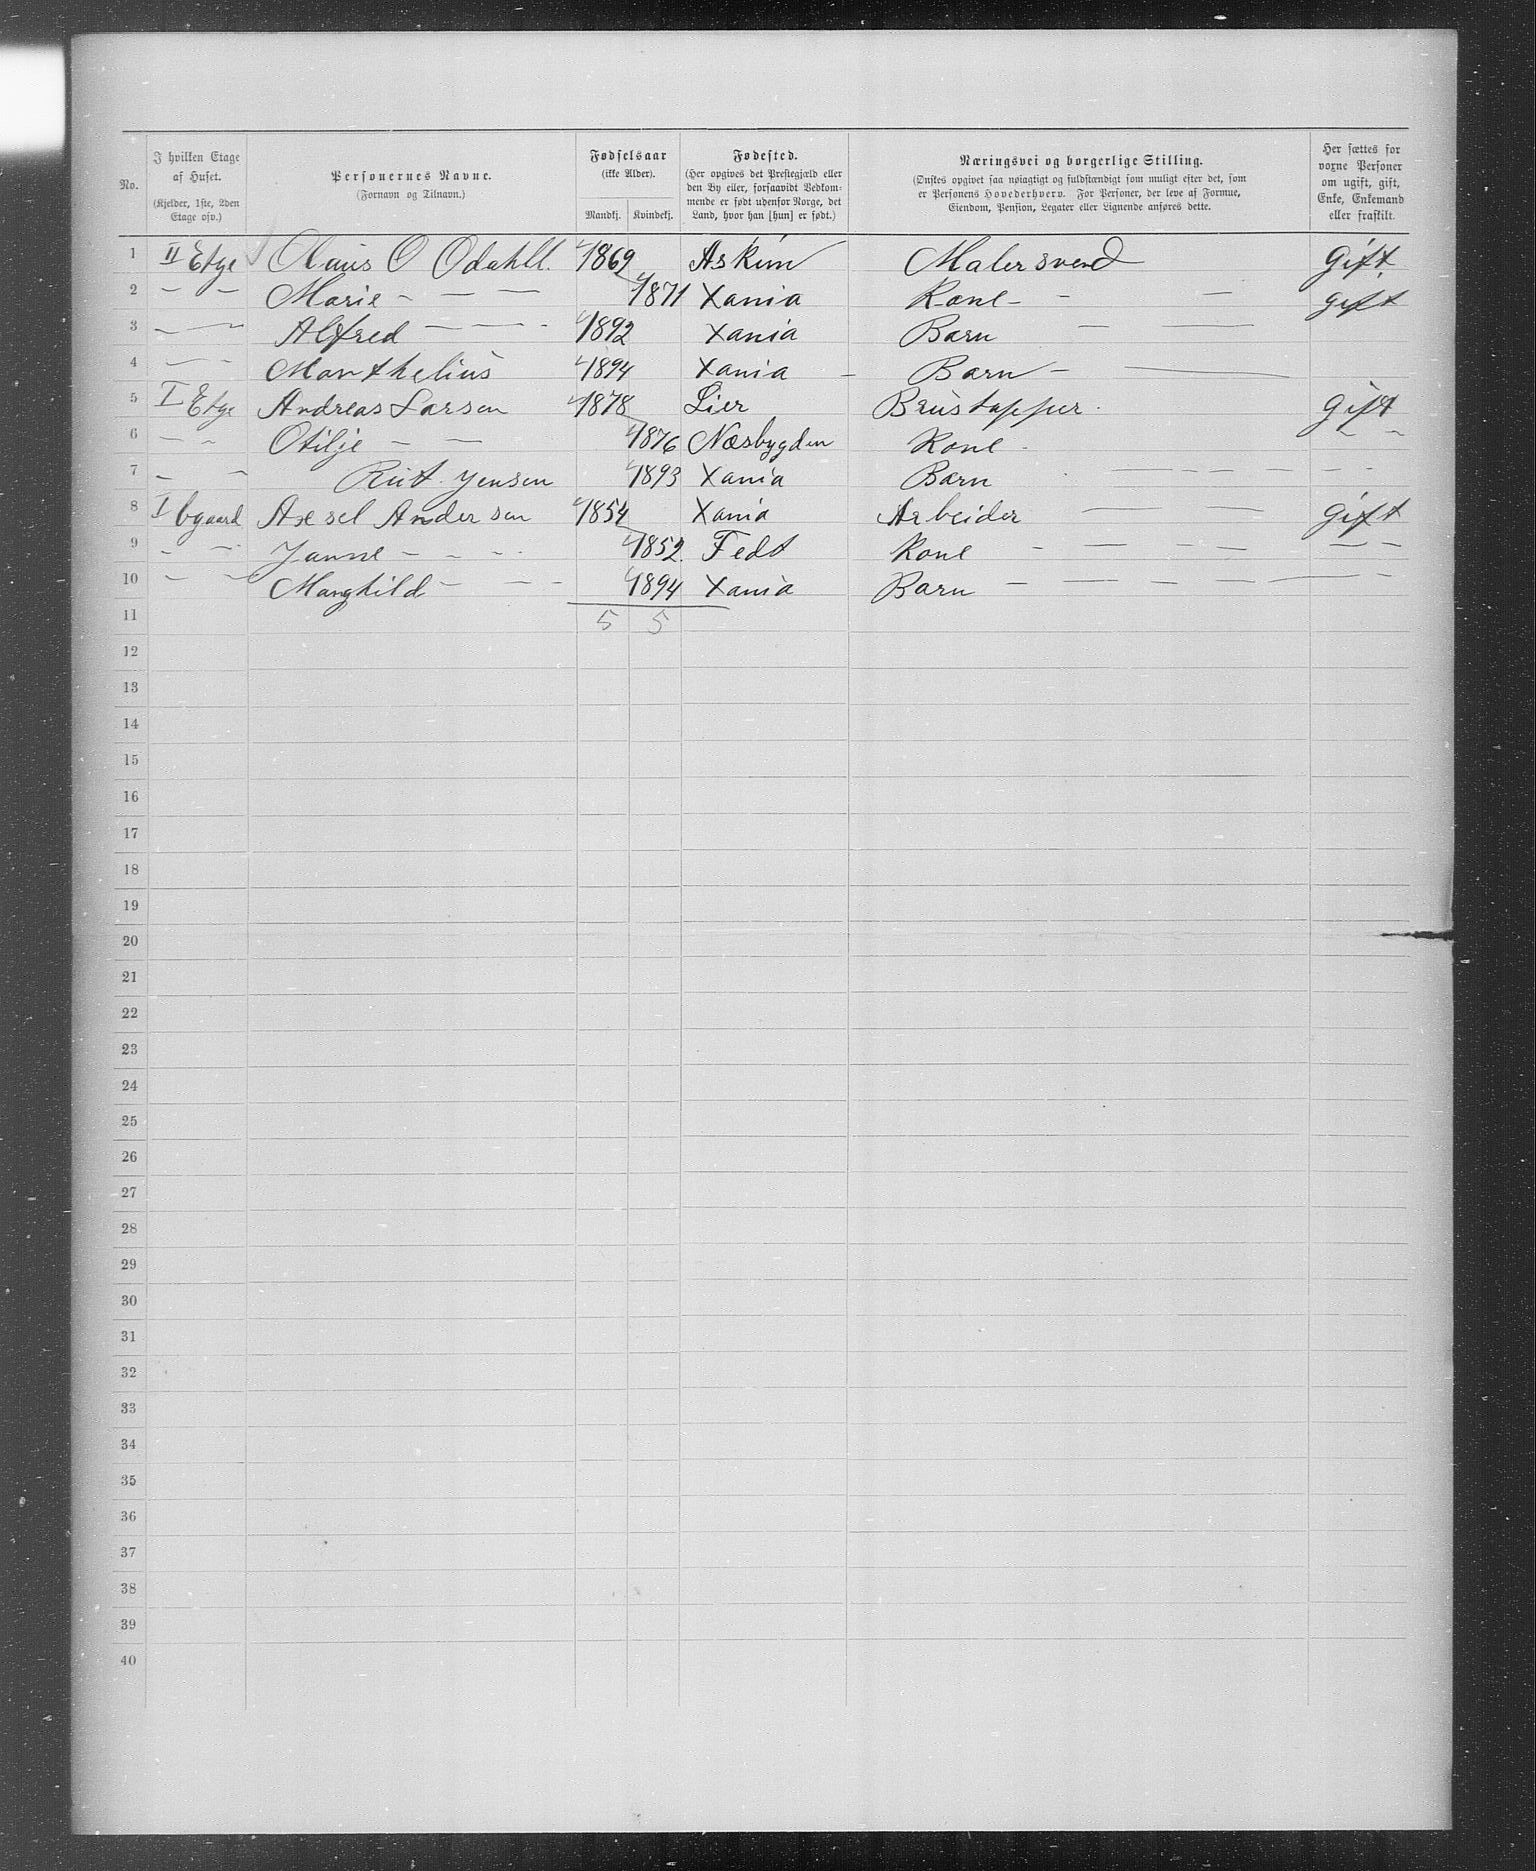 No.
I hvilken Etage af Huset.
(Kjelder, 1ste, 2den Etage osv.)
Personernes Navne.
(Fornavn og Tilnavn.)
Fødselsaar
(ikke Alder).
Mandkj.
Kvindekj.
Fødested.
(Her opgives det Prestegjæld eller
den By eller, forsaavidt Vedkom-
mende er født udenfor Norge, det
Land, hvor han [hun] er født.)
Næringsvei og borgerlige Stilling.
(Ønskes opgivet saa nøiagtigt og fuldstændigt som muligt efter det, som
er Personens Hovederhverv. For Personer, der leve af Formue,
Eiendom, Pension, Legater eller Lignende anføres dette.
Her sættes for
voxne Personer
om ugift, gift,
Enke, Enkemand
eller fraskilt.
1 II Etge Olaus O Odahll. 1869 Askim Malersvend gift
2 — — Marie — — — 1871 Xania Kone — — — gift
3 — — Alfred — — - 1892 Xania Barn — —
4 — — Manthelius 1894 Xania — Barn — —
5 I Etge Andreas Larsen 1878 Lier Brustapper. gift
6 — - Otilje — — 1876 Næsbygden Kone - — -
7 - — Rut. Jensen 1893 Xania Barn - - — — — - -
8 I bgaard Axel Andersen 1854 Xania Arbeider — — — gift
9 - — Janne — - - - 1852. Fedt Kone — — — — — — -
10 — — Manghild — — - 1894 Xania Barn — — — — — — — -
11 5 5
12
13
14
15
16
17
18
19
20
21
22
23
24
25
26
27
28
29
30
31
32
33
34
35
36
37
38
39
40